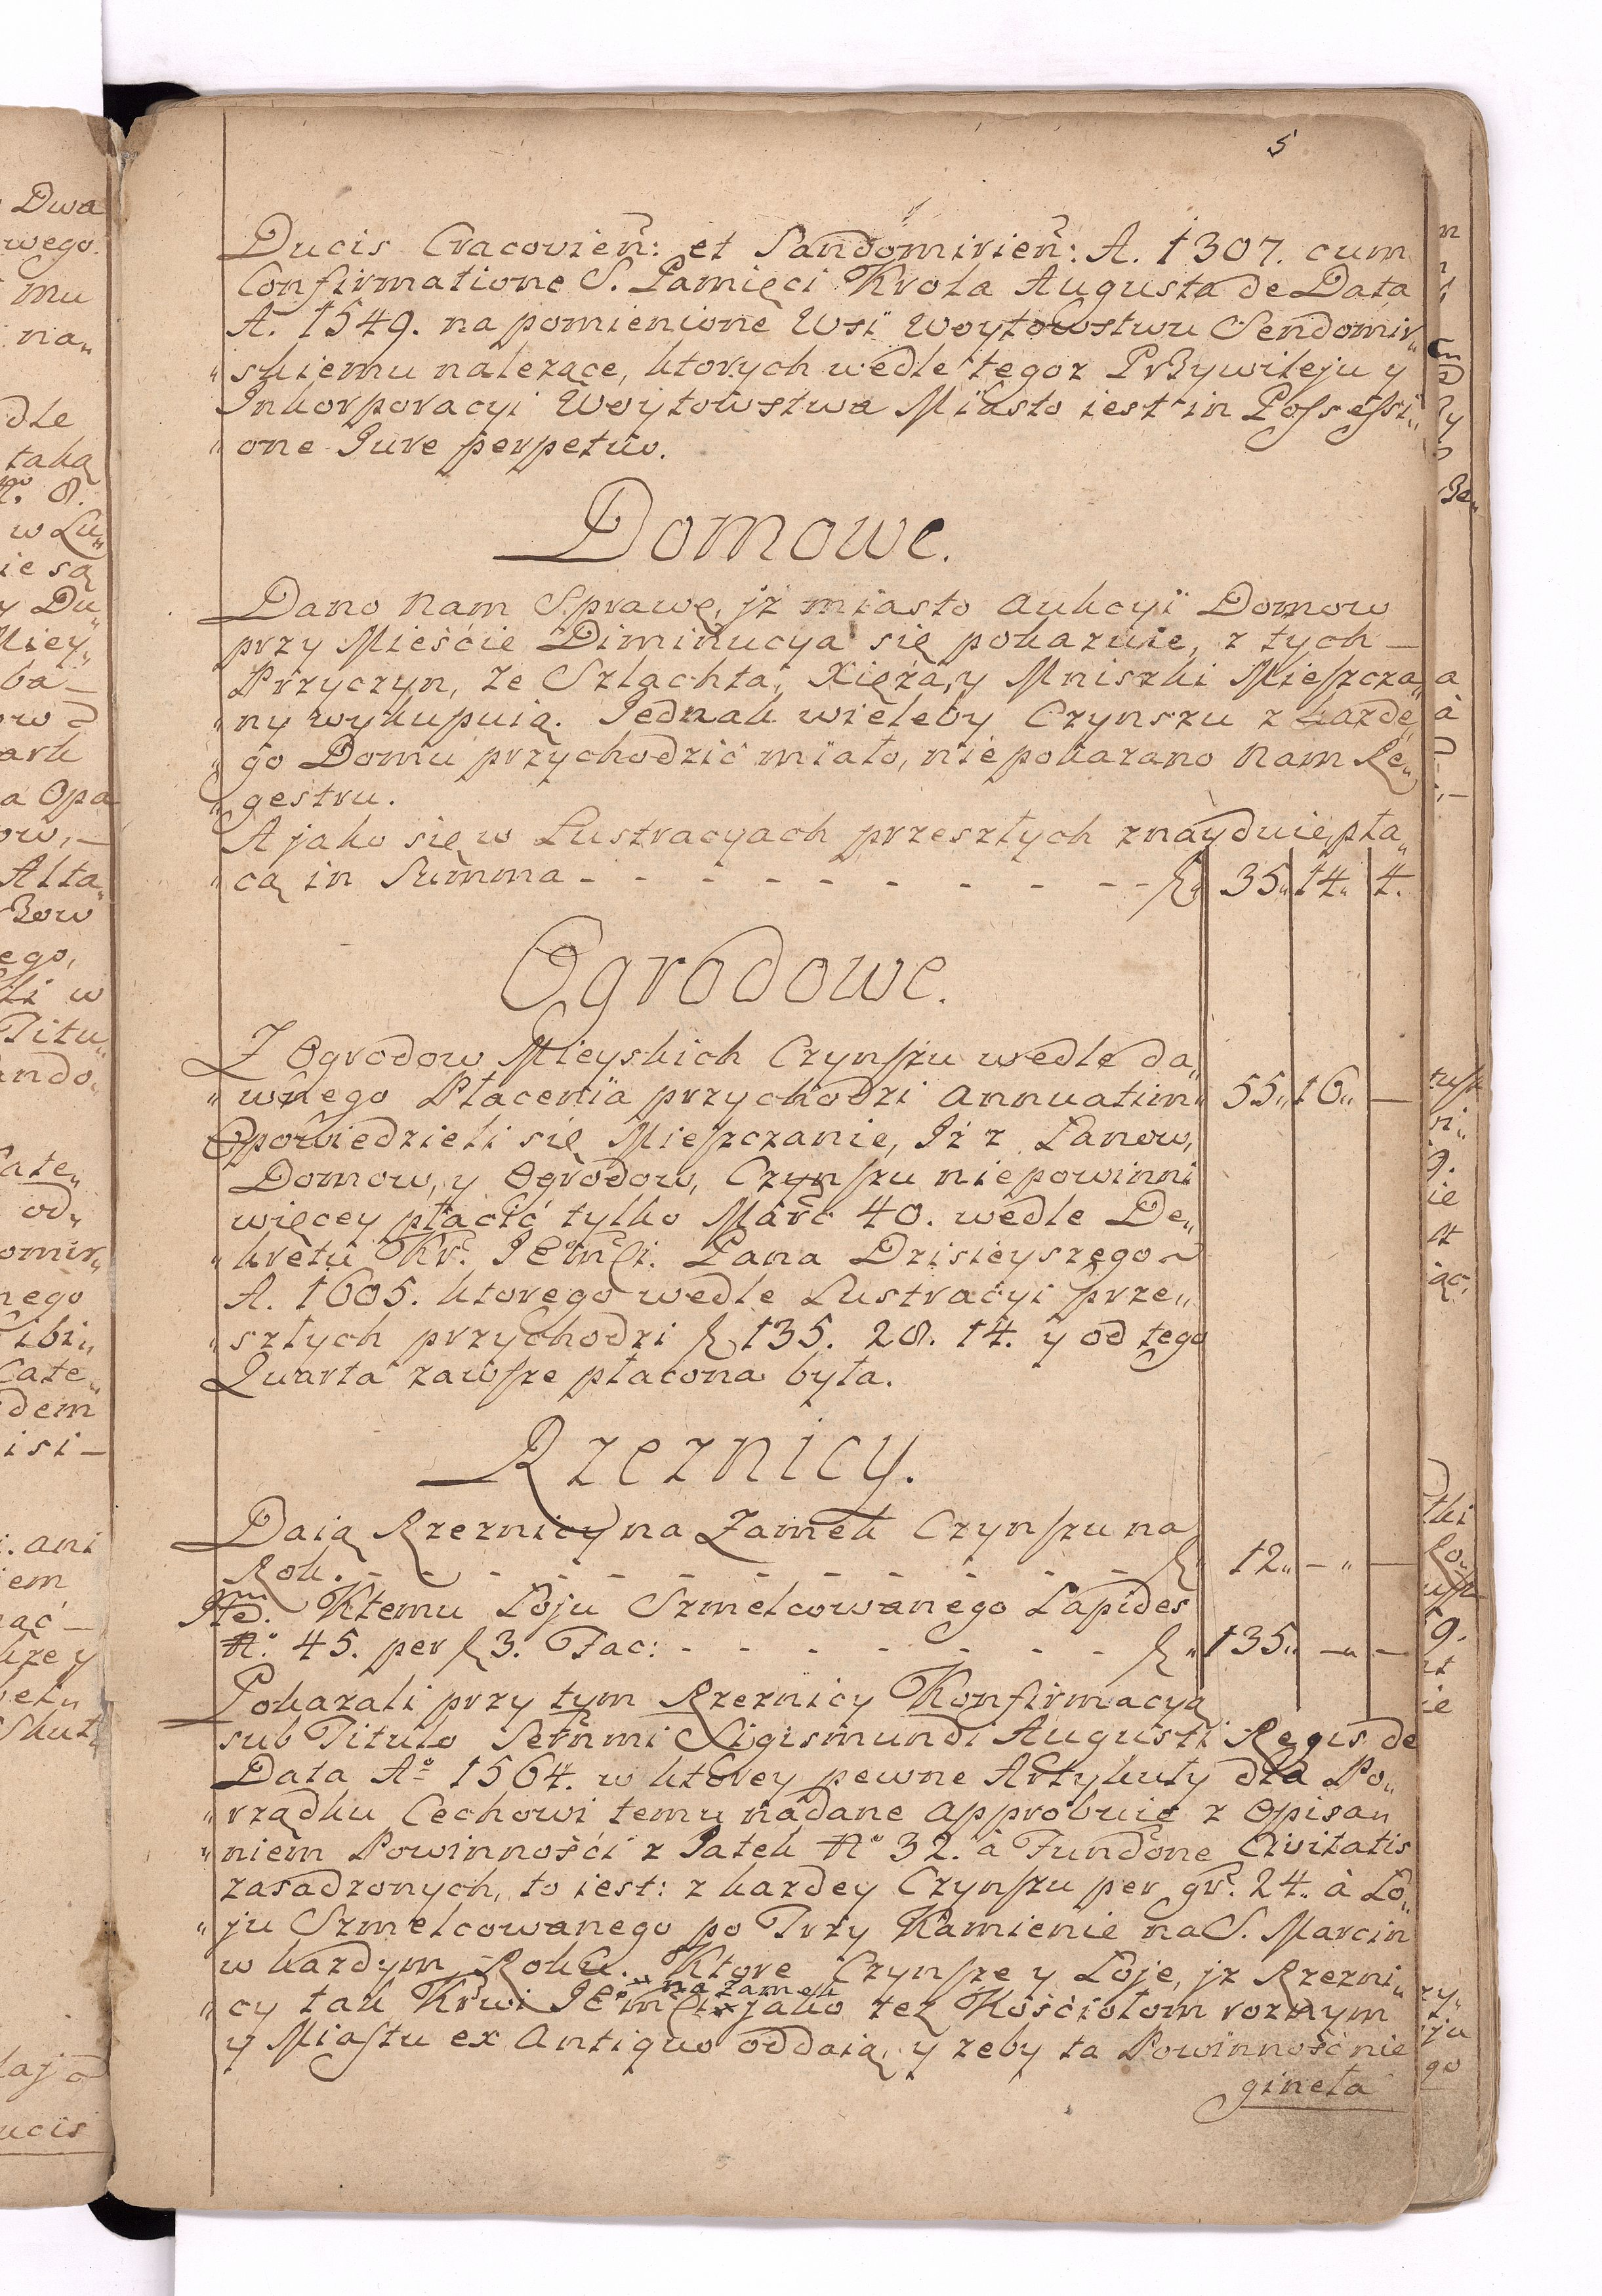 5
Ducis Cracovien̄: et Sandomirien̄: A. 1307. cum
Confirmatione S. Pamięci Krola Augusta de Data
A. 1549. na pomienione Wsi Woytowstwu Sendomir„
„skiemu nalezące, ktorych wedle tegoz Przywileju y
Inkorporacyi Woytowstwa Miasto iest in Possessi„
„one Jure perpetuo.
Domowe.
Dano Nam Sprawę, jz miasto Aukcyi Domow
przy Mieście Diminucya się pokazuie, z tych —
Przyczyn, ze Szlachta, Xięza, y Mniszki Mieszcza„
„ny wykupuią. Jednak wieleby Czynszu z kazde„
„go Domu przychodzić miało, nie pokazano Nam Re„
„gestru.
A jako się w Lustracyach przeszłych znayduie, pła„
„cą in Summa - - - - - - - - - - fl„ 35„ 14„ 4.
Ogrodowe.
Z Ogrodow Mieyskich Czynszu wedle da„
„wnego Płacenia przychodzi Annuatim„ 55„ 16„ —
Opowiedzieli się Mieszczanie, Iż z Łanow,
Domow, y Ogrodow, Czynszu nie powinni
więcey płacić tylko Març 40. wedle De„
„kretu Kr. JEo mći. Pana Dzisieyszego
A. 1605. ktorego wedle Lustracyi prze„
„szłych przychodzi fl 135. 28. 14. y od tego
Quarta zawsze płacona była.
Rzeznicy.
Daią Rzeznicy na Zamek Czynszu na
Rok. - - - - - - - - - - - fl„ 12„ —„ —
Ite͠. Ktemu Łoju Szmelcowanego Lapides
No 45. per fl 3. Fac: - - - - - - - - fl„ 135„ —„ —
Pokazali przy tym Rzeznicy Konfirmacyą
sub Titulo Seřnmi Sigismundi Augusti Regis de
Data Ao 1564. w ktorey pewne Artykuły dla Po„
„rządku Cechowi temu nadane approbuie z Opisan„
„niem Powinności z Jatek No 32. à Fundōne Civitatis
zasadzonych, to iest: z kazdey Czynszu per gr. 24. à Ło„
„ju Szmelcowanego po Trzy Kamienie na S. Marcin
w kazdym Roku. Ktore Czynsze y Łoje, jz Rzezni„
na Zamek
„cy tak Krwi JEo mći jako tez Kościołom roznym
y Miastu ex Antiquo oddaią, y zeby ta Powinność nie
gineła